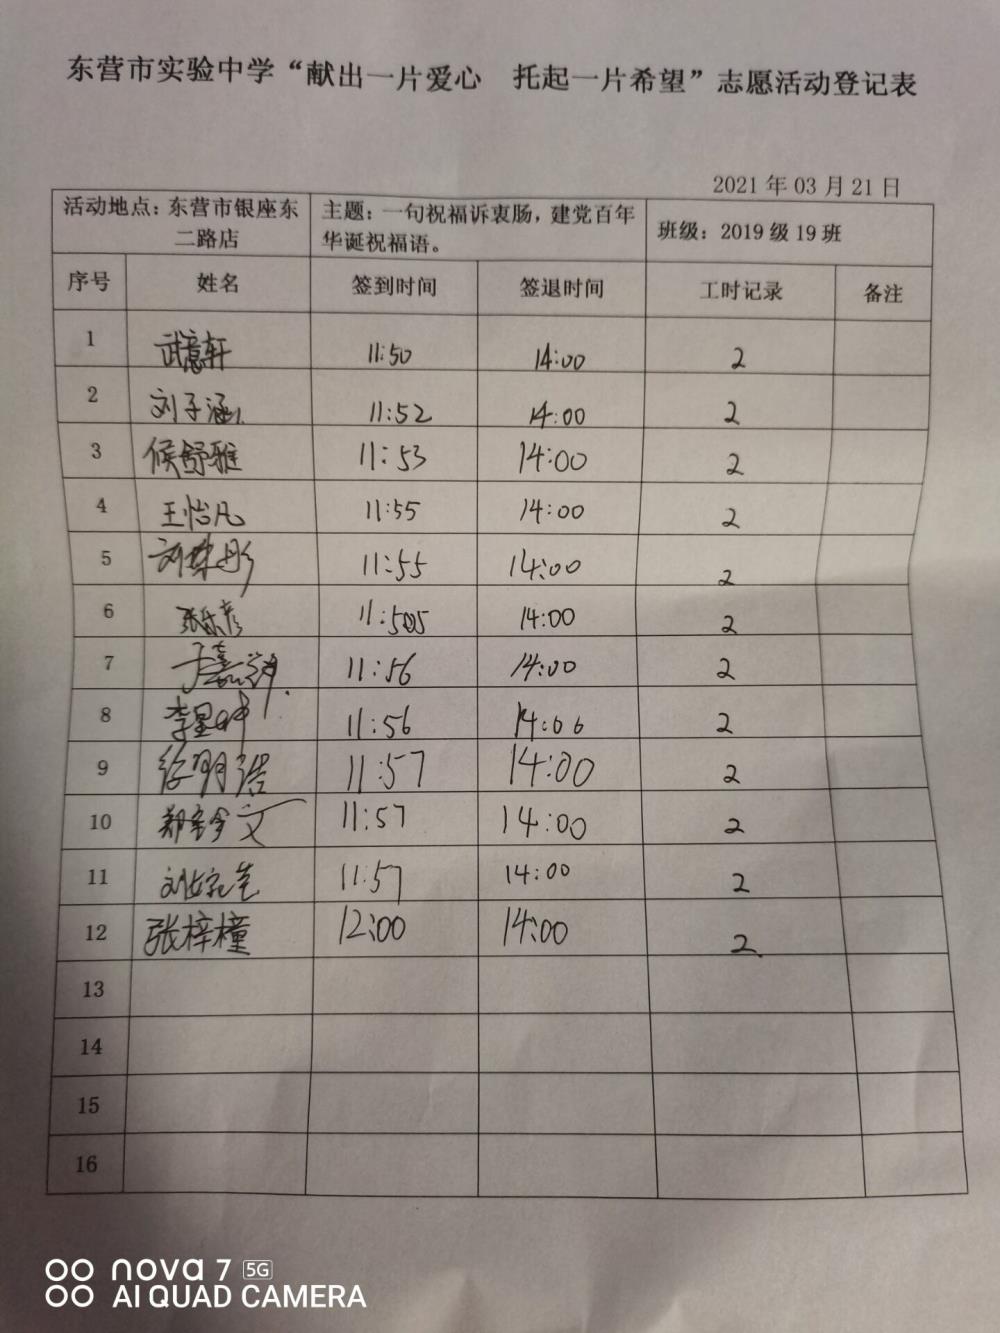 东营市实验中学“献出一片爱心 托起一片希望”志愿活动登记表
2021 年 03 月 21 日
活动地点：东营市银座东二路店 主题：一句祝福诉衷肠，建党百年华诞祝福语。 班级：2019 级 19 班
序号 姓名 签到时间 签退时间 工时记录 备注
1 武意轩 11:50 14:00 2
2 刘子涵 11:52 14:00 2
3 侯舒雅 11:53 14:00 2
4 王怡凡 11:55 14:00 2
5 11:55 14:00 2
6 张乐彦 11:55 14:00 2
7 11:56 14:00 2
8 11:56 14:00 2
9 徐明浩 11:57 14:00 2
10 11:57 14:00 2
11 11:57 14:00 2
12 张梓橦 12:00 14:00 2
13
14
15
16
nova 7 5G
AI QUAD CAMERA